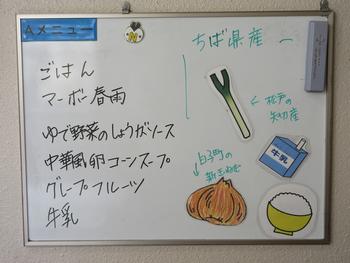 Aメニュー
ごはん
マーボー春雨
ゆで野菜のしょうがソース
中華風卵コーンスープ
グレープフルーツ
牛乳
ちば県産
松戸の
矢切産
牛乳
白子町の
新玉ねぎ